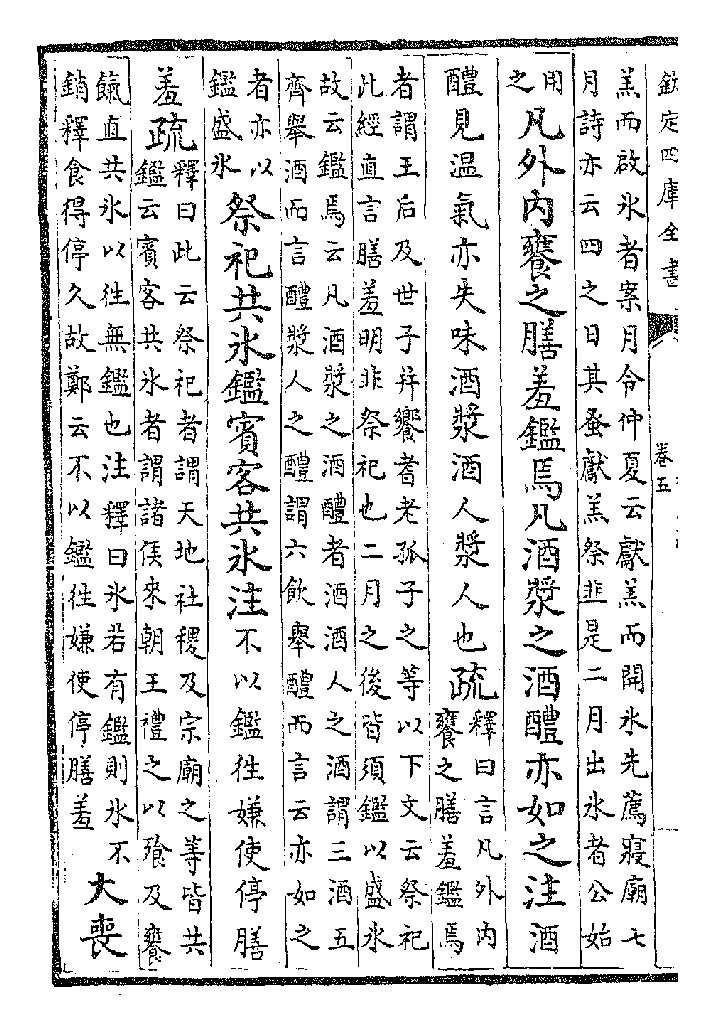 欽定四庫全書
卷五
羔而啟氷者案月令仲夏云獻羔而開氷先薦寢廟七
月詩亦云四之日其蚤獻羔祭韭是二月出氷者公始
用
之
凡外内饔之膳羞鑑焉凡酒漿之酒醴亦如之注酒
醴見温氣亦失味酒漿酒人漿人也疏
釋曰言凡外内
饔之膳羞鑑焉
者謂王后及世子并饗耆老孤子之等以下文云祭祀
此經直言膳羞明非祭祀也二月之後皆須鑑以盛氷
故云鑑焉云凡酒漿之酒醴者酒酒人之酒謂三酒五
齊舉酒而言醴漿人之醴謂六飲舉醴而言云亦如之
者亦以
鑑盛氷
祭祀共氷鑑賓客共氷注不以鑑往嫌使停膳
羞疏
釋曰此云祭祀者謂天地社稷及宗廟之等皆共
鑑云賓客共氷者謂諸侯來朝王禮之以飱及饔
餼直共氷以徃無鑑也注釋曰氷若有鑑則氷不
銷釋食得停久故鄭云不以鑑徃嫌使停膳羞
大喪